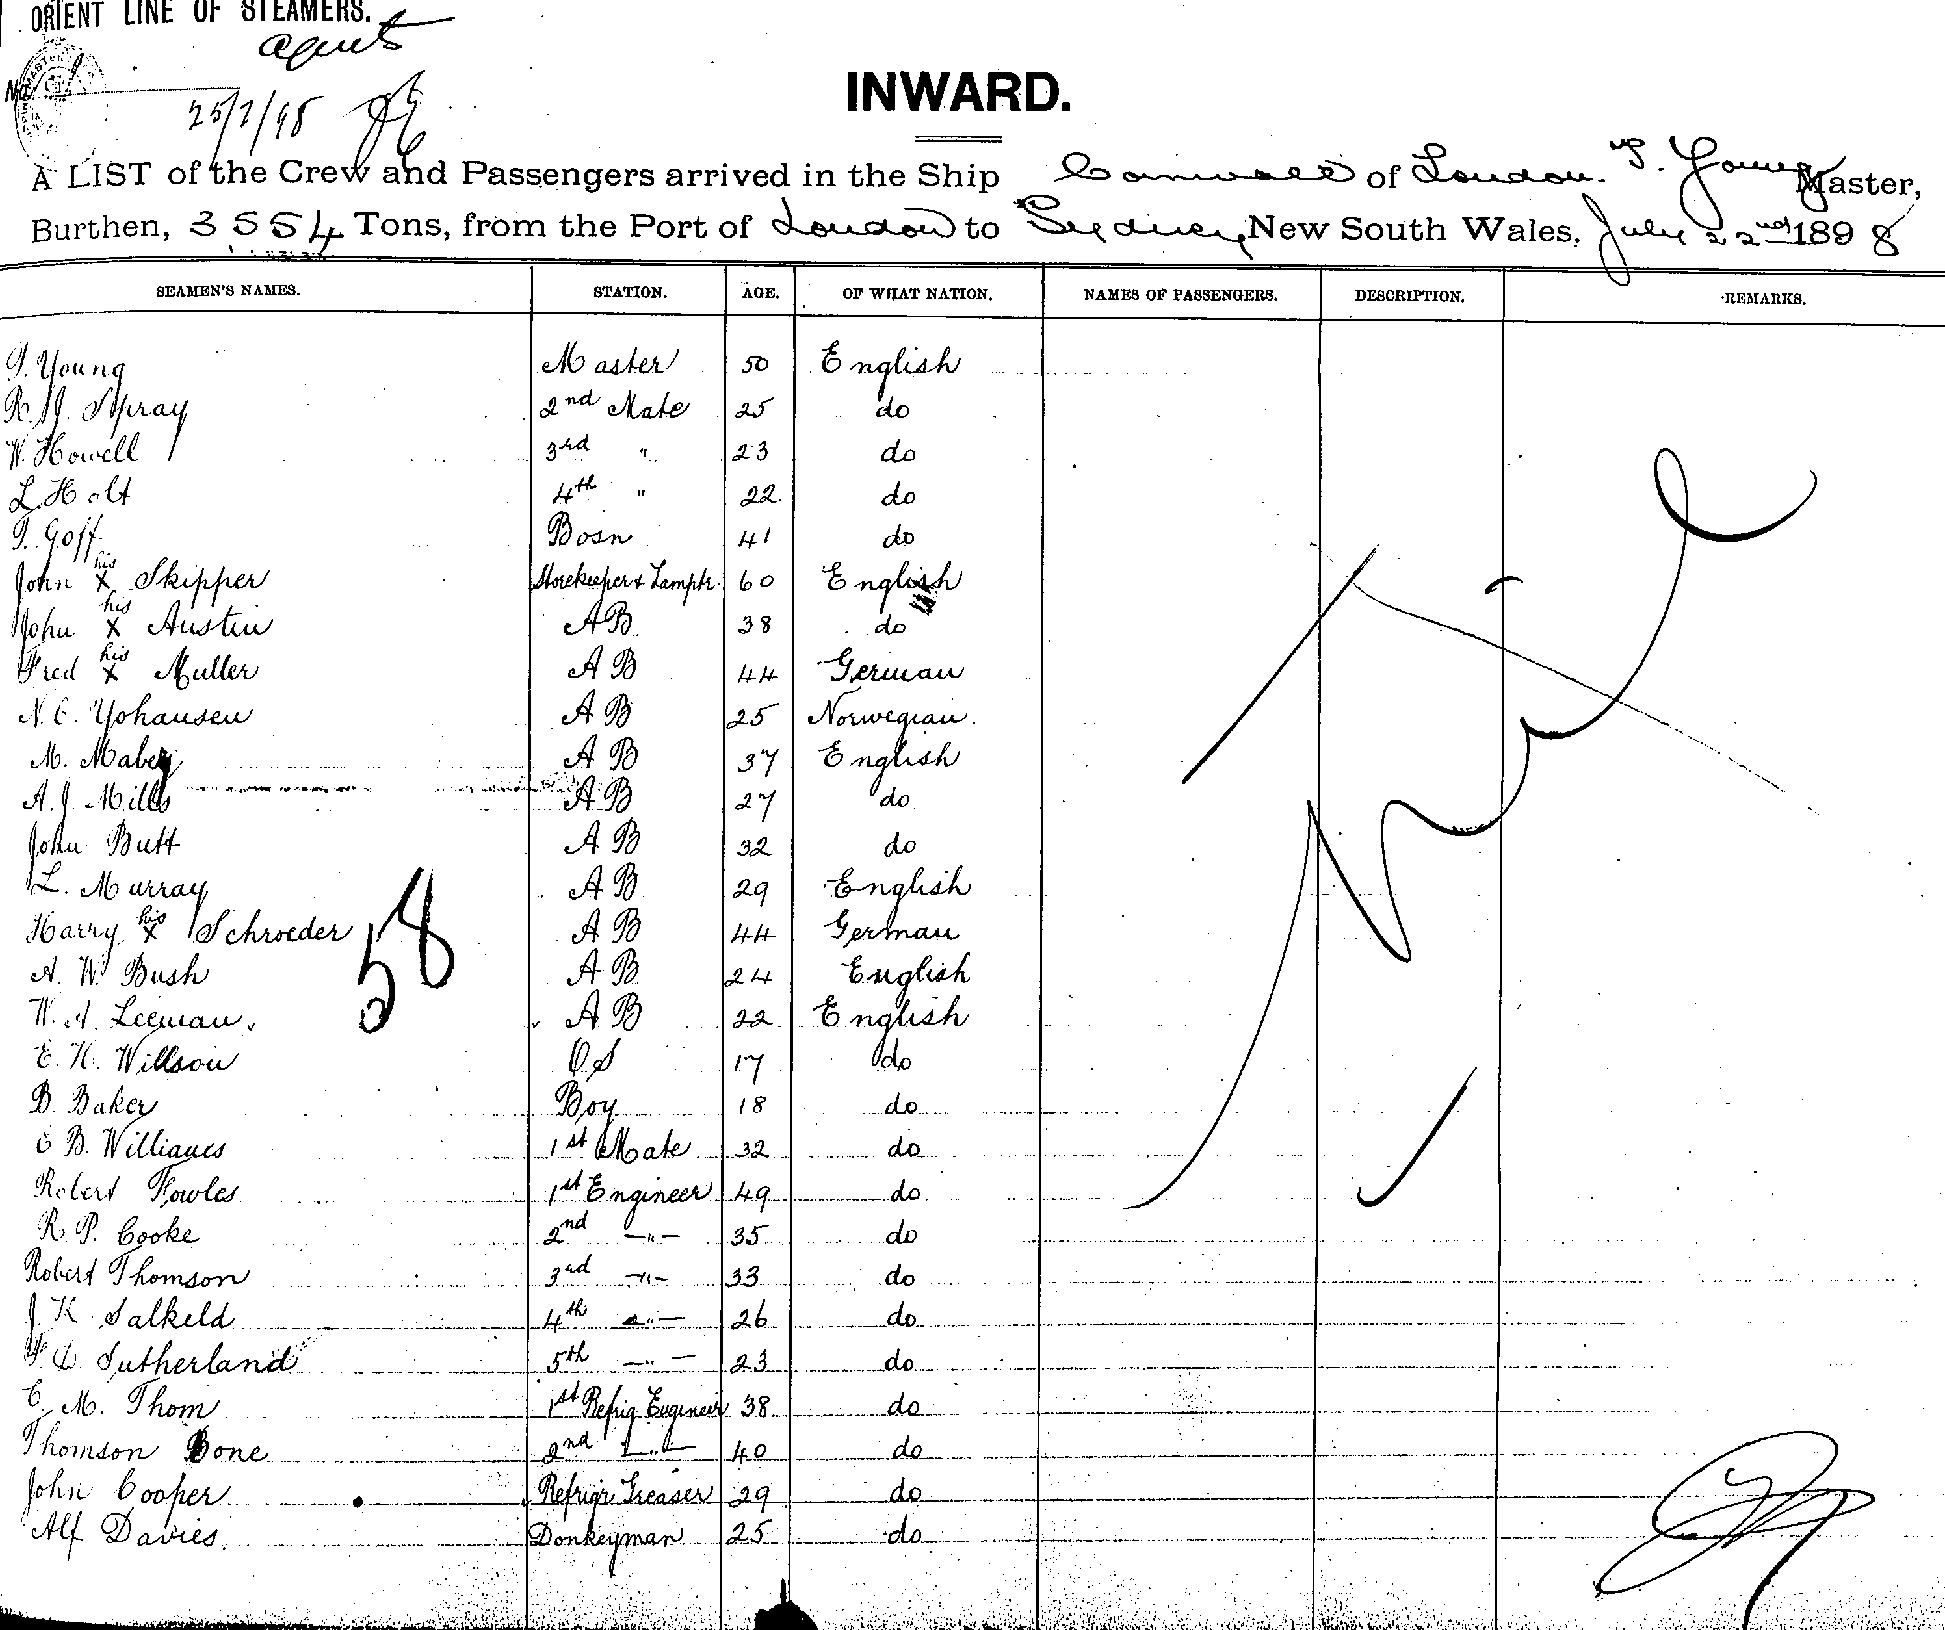 ORIENT LINE OF STEAMERS.
agents
No.
25/7/98
INWARD.
A LIST of the Crew and Passengers arrived in the Ship Cornwall of London. T. Young Master,
Burthen, 3554 Tons, from the Port of London to Sydney, New South Wales, July 22nd 1898
SEAMEN'S NAMES. STATION. AGE. OF WHAT NATION. NAMES OF PASSENGERS. DESCRIPTION. REMARKS.
T. Young Master 50 English
R. J. Spray 2nd Mate 25 do
W. Howell 3rd " 23 do
L. Holt 4th " 22 do
T. Goff Bosn 41 do
John his X Skipper Storekeeper & Lamptr. 60 English
John his X Austin AB 38 do
Fred his X Muller AB 44 German
N. C. Yohansen AB 25 Norwegian.
M. Mabey AB 37 English
A. J. Mills AB 27 do
John Butt AB 32 do
L. Murray AB 29 English
Harry his X Schroeder AB 44 German
58
A. W. Bush AB 24 English
W. A. Leeman. AB 22 English
E. H. Willson OS 17 do
B. Baker Boy 18 do
C B. Williams 1st Mate 32 do
Robert Fowles 1st Engineer 49 do
R. P. Cooke 2nd —"— 35 do
Robert Thomson 3rd —"— 33 do
J. K. Salkeld 4th —"— 26 do
Sutherland 5th —"— 23 do
C. M. Thom 1st Refrig Engineer 38 do
Thomson Bone 2nd —"— 40 do
John Cooper Refrigr Greaser 29 do
Alf Davies Donkeyman 25 do